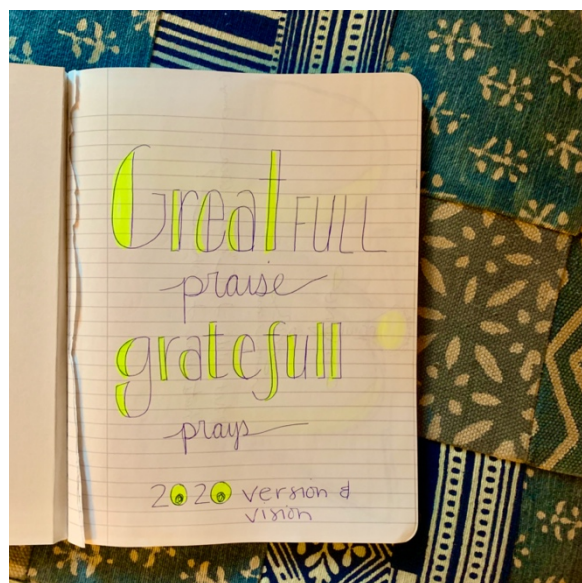 Great FULL
praise
gratefull
prays
2020 version &
vision